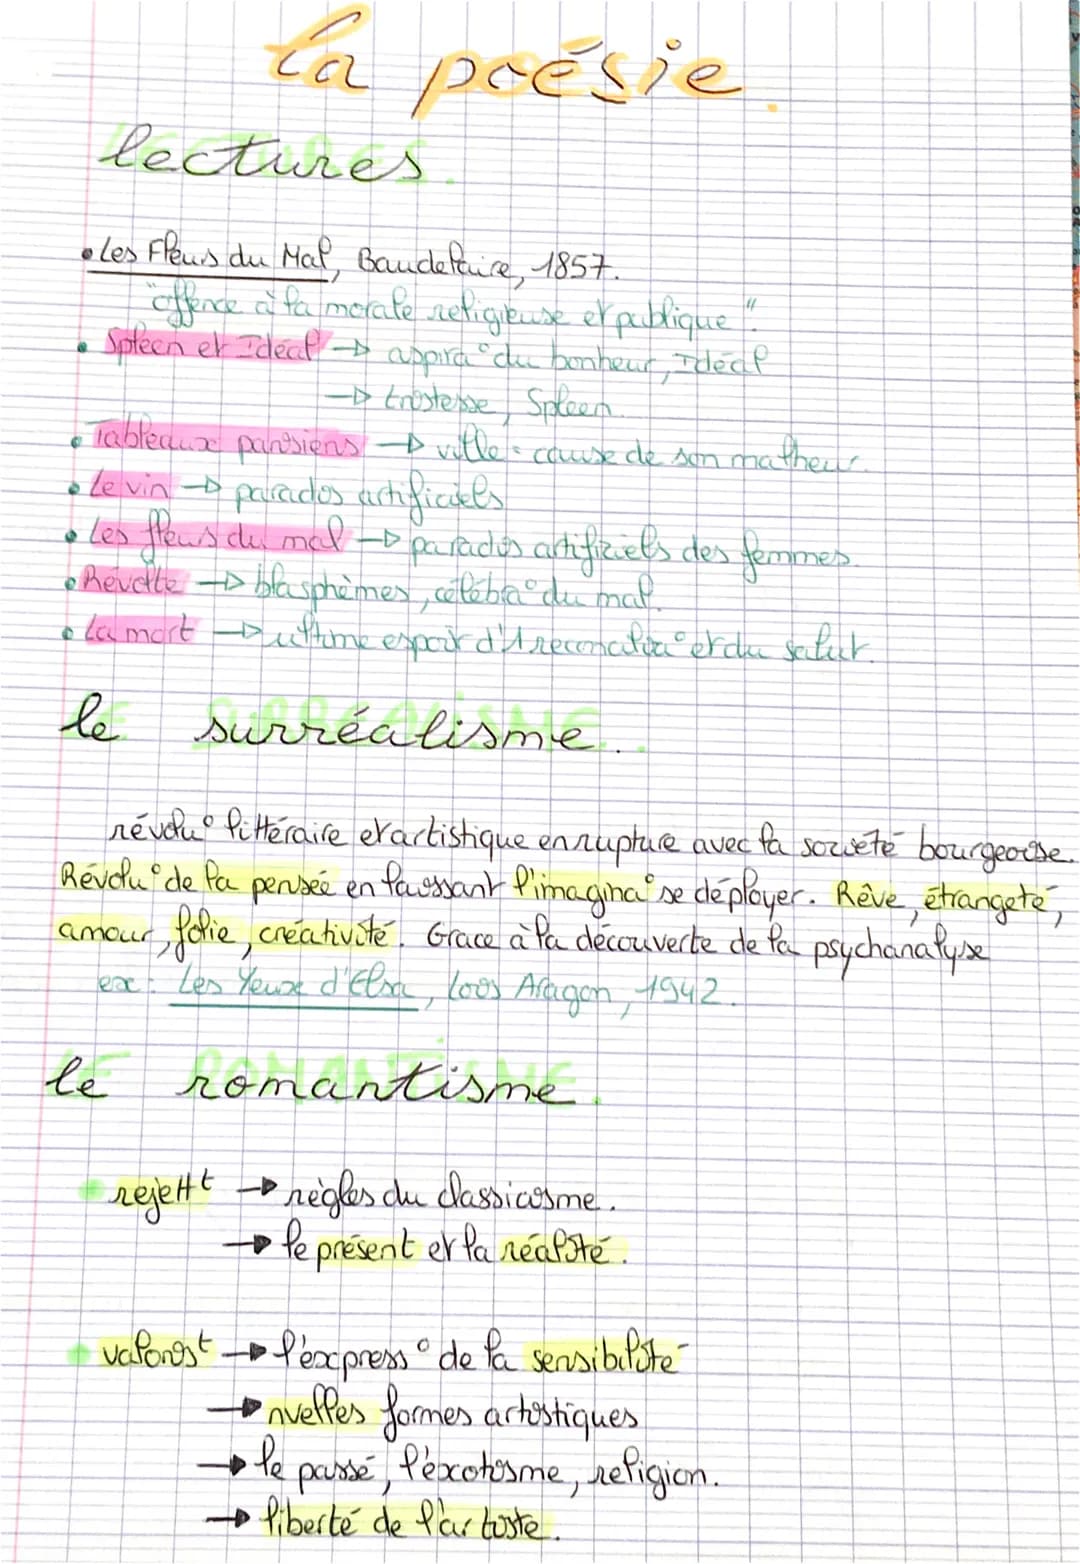 la poésie.
lectures.
• Les Fleurs du Mal, Baudelaire, 1857.
"offence à la morale religieuse et publique".
• Spleen et Idéal → aspira° du bonheur, Idéal
→ tristesse, Spleen.
• Tableaux parisiens → ville = cause de son malheur.
• Le vin → paradis artificiels
• Les fleurs du mal → paradis artificiels des femmes.
• Révolte → blasphèmes, célébra° du mal.
• La mort → ultime espoir d'1 reconcilia° et du salut.
le surréalisme.
révolu° littéraire et artistique en rupture avec la société bourgeoise.
Révolu° de la pensée en laissant l'imagina° se déployer. Rêve, étrangeté,
amour, folie, créativité. Grace à la découverte de la psychanalyse
ex: Les Yeux d'Elsa, Loos Aragon, 1942.
le romantisme.
rejettt → règles du classicisme.
→ le présent et la réalité.
valorist → l'express° de la sensibilité
→ nvelles formes artistiques
→ le passé, l'éxotisme, religion.
→ liberté de l'artiste.